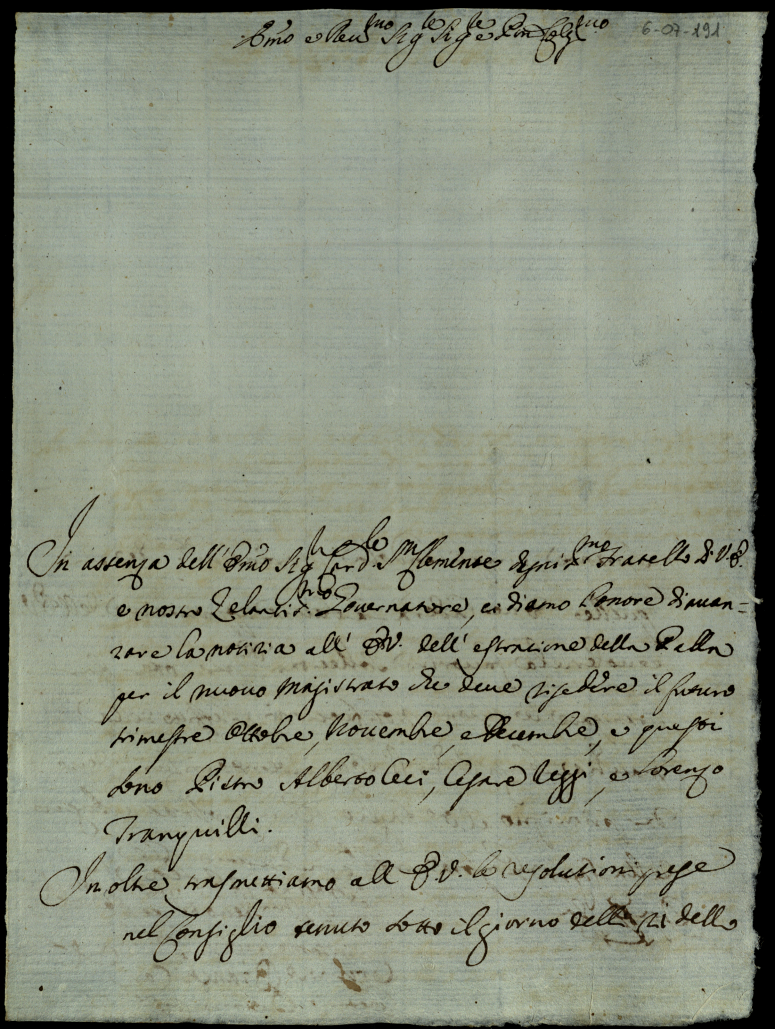 Emo e Reumo Sigle Sigle e Pron Colmo
6-07-191
In assenza dell' Emo Sigr Cardle Sn Clemente degnismo Fratello di V. E.
e nostro Zelantismo Gouernatore, ci diamo l'onore di auan=
zare la notizia all' E.V. dell' estrazione della Palla
per il nuouo Magistrato che deue risedere il futuro
trimestre Ottobre, Nouembre, e Decembre, e questi
sono Pietro Alberto Ceci, Cesare Leggi, e Lorenzo
Tranquilli.
In oltre trasmettiamo all E.V. le resolutioni prese
nel Consiglio tenuto sotto il giorno delli 21 dello